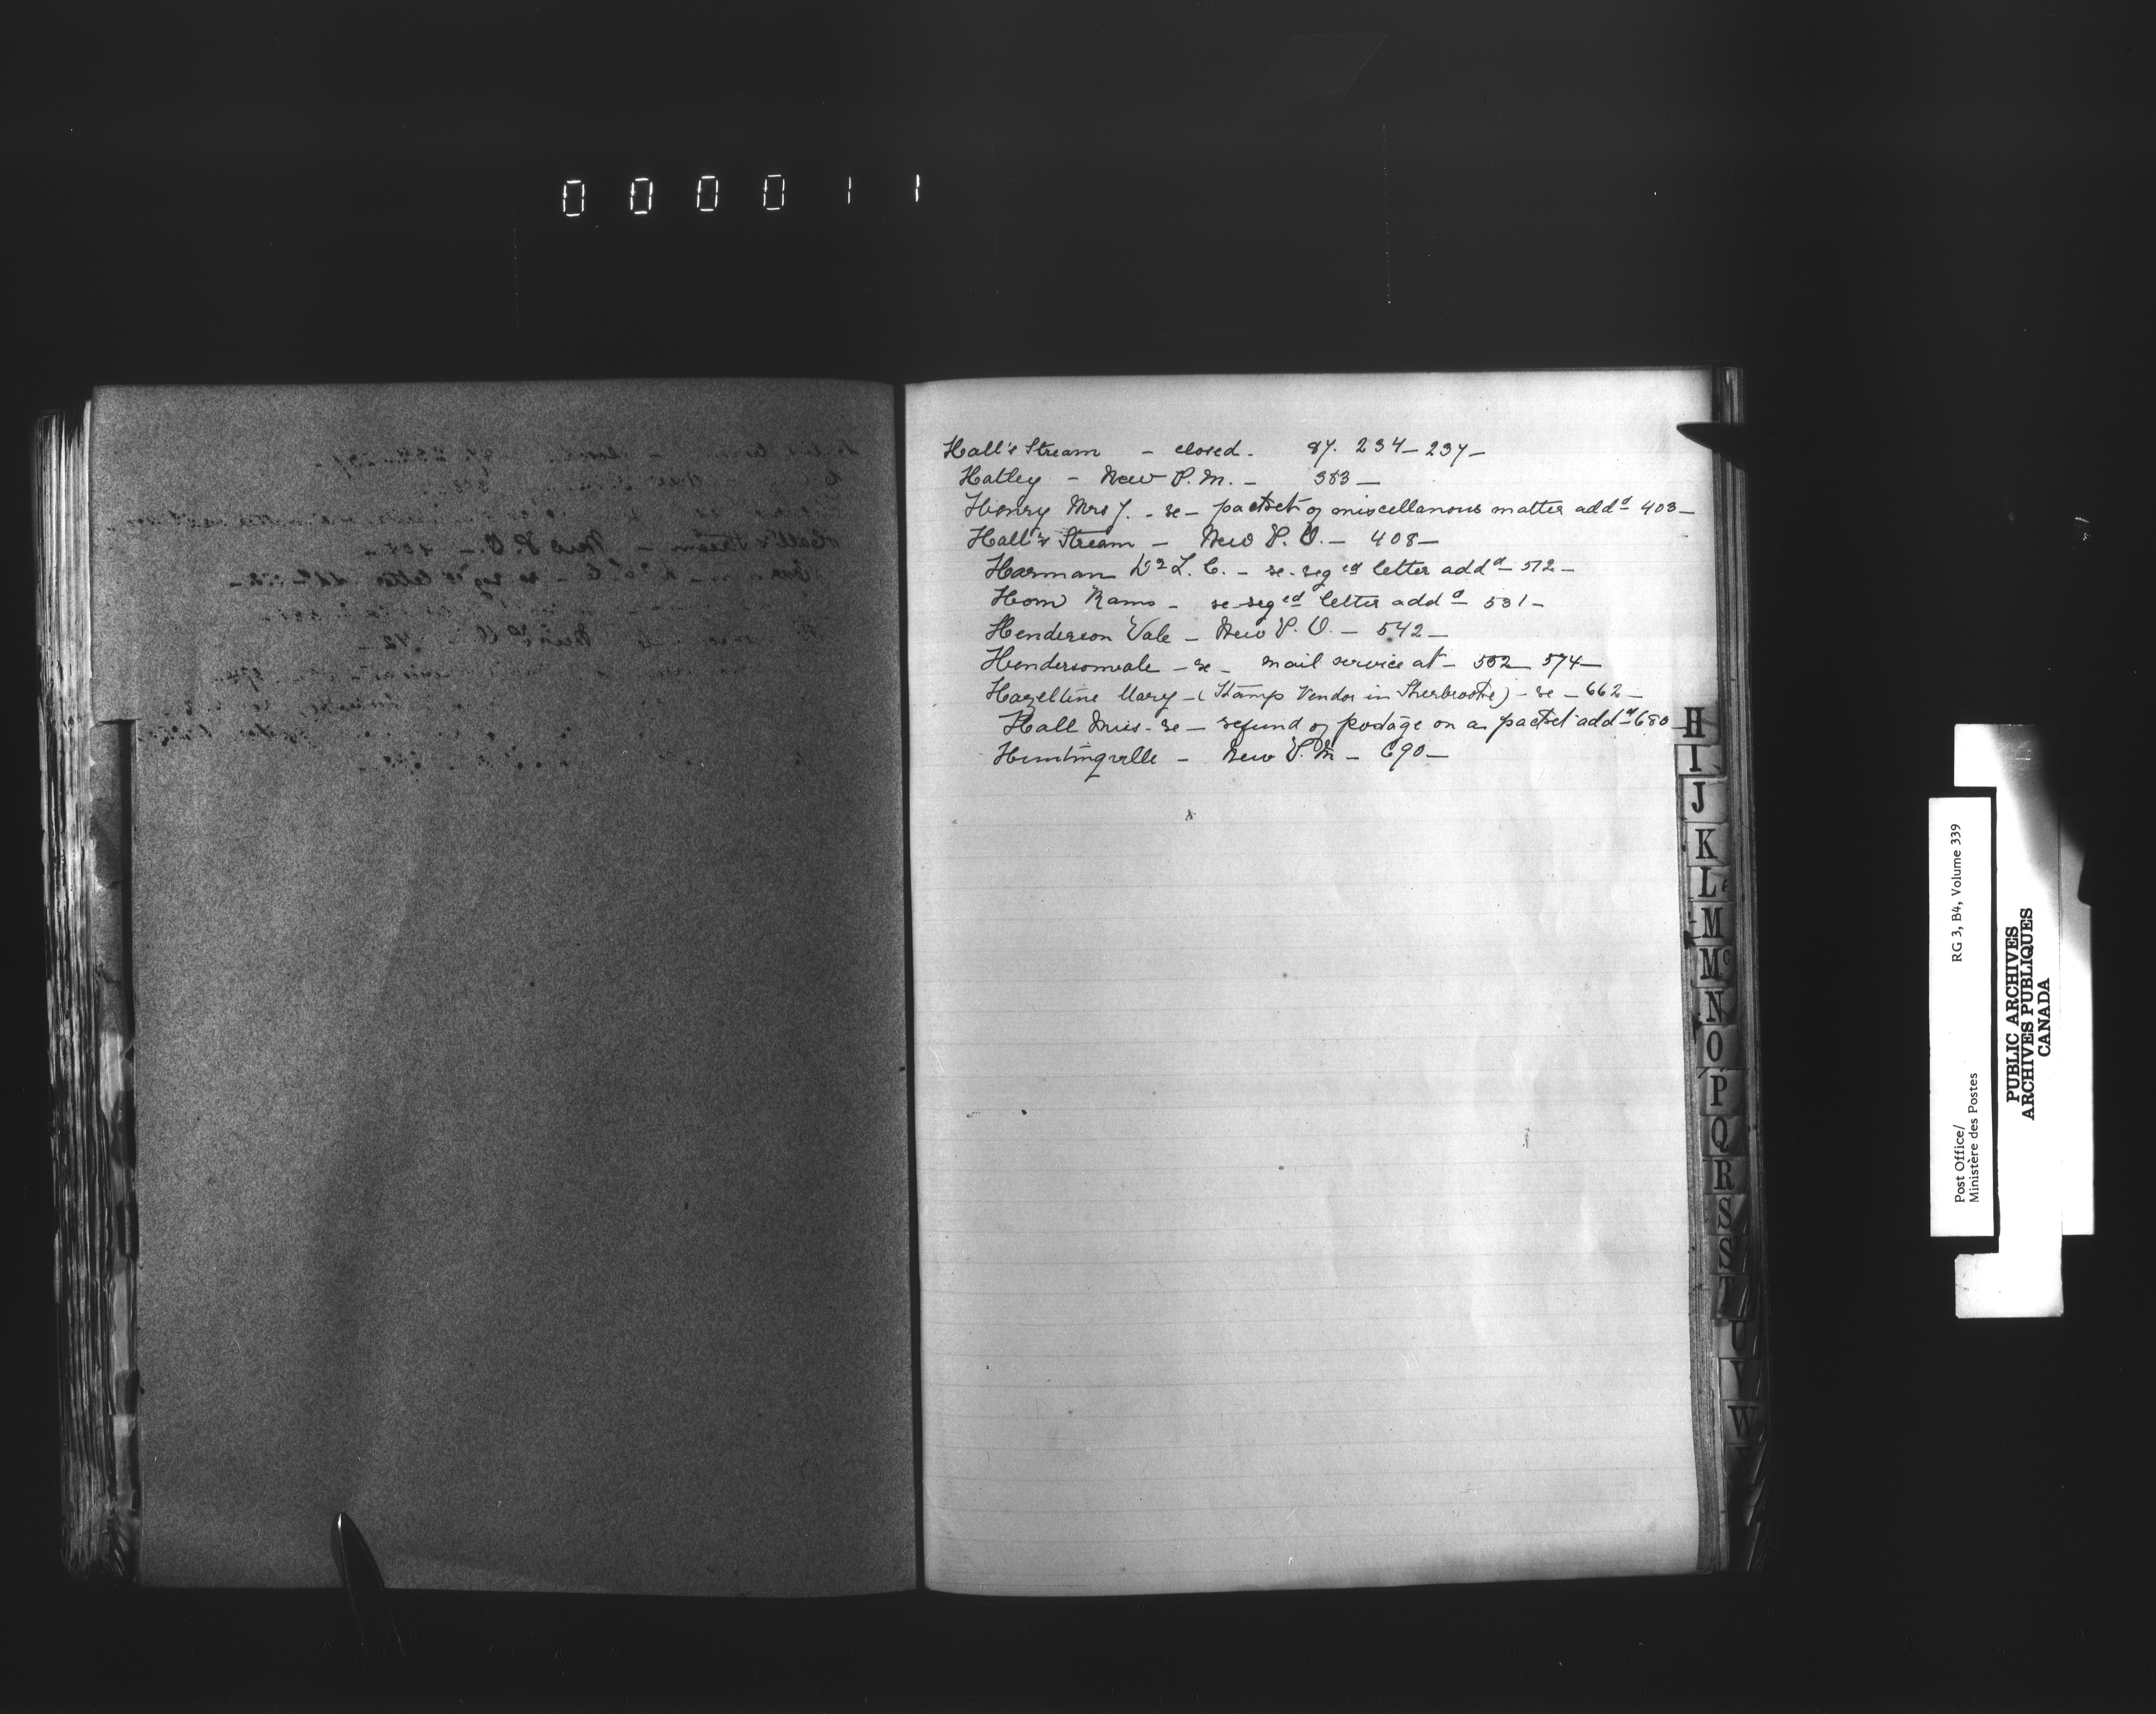 000011
Hall's Stream - closed - 87. 234 - 237 -
Hatley - New P.M. - 383 -
Henry Mrs J. - re - packet of miscellanous matter addd 403 -
Hall's Stream - New P. O. - 408 -
Harman L. C. - re - reged letter addd 512 -
Horn - re reged letter addd 531 -
Henderson Vale - New P. O. - 542 -
Hendersonvale - re - mail service at - 552 574 -
Hazeltine Mary - (Stamp Vendor in Sherbrooke) - re - 662 -
Hall Miss - re - refund of postage on a packet addd 680
Huntingville - New P.M - 690 -
H
I
J
K
L
M
Mc
N
O
P
Q
R
S
S
T
U
V
W
Post Office/ RG 3, B4, Volume 339
Ministère des Postes
PUBLIC ARCHIVES
ARCHIVES PUBLIQUES
CANADA